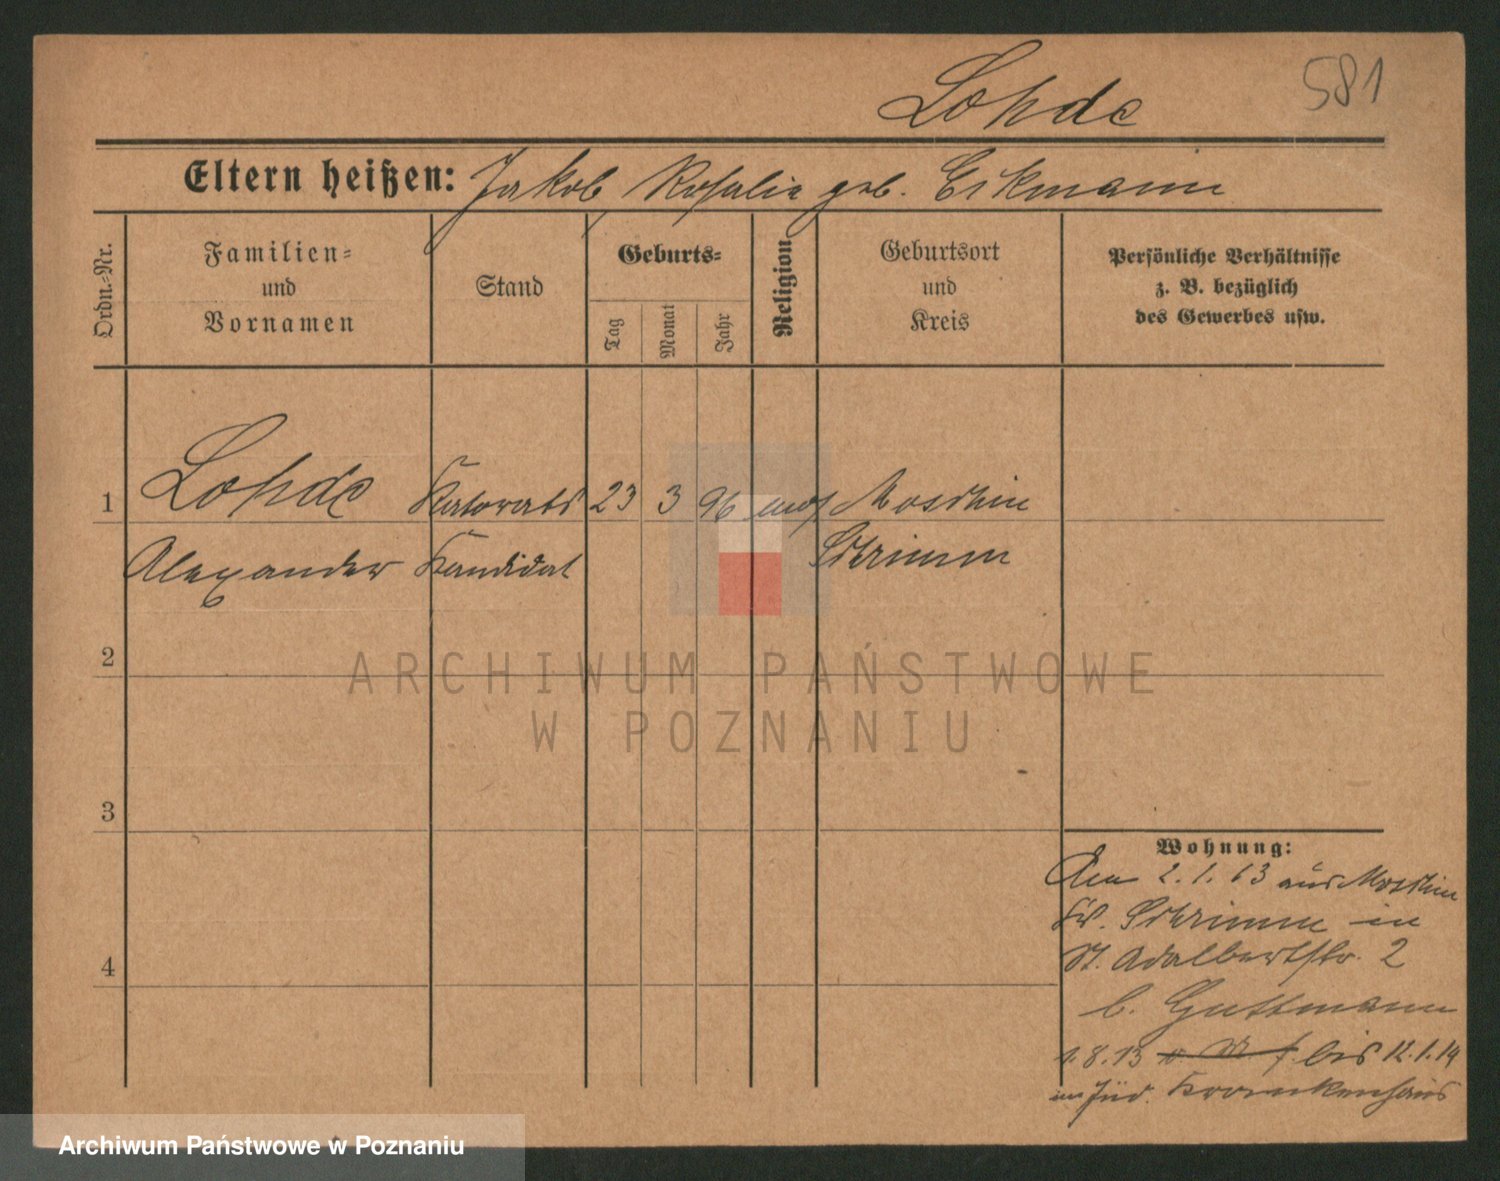 581
Lohde
Eltern heißen: Jakob, Rosalie geb. Eckmann
Ordn.-Nr.
Familien-
und
Vornamen
Stand
Geburts-
Tag
Monat
Jahr
Religion
Geburtsort
und
Kreis
Persönliche Verhältnisse
z. B. bezüglich
des Gewerbes usw.
1
Lohde
Alexander
Kandidat
23
3
96
mos
Moschin
Schrimm
2
3
4
ARCHIWUM PAŃSTWOWE
W POZNANIU
Wohnung:
Am 2. 1. 13 aus Moschin
Kr. Schrimm in
St. Adalbertstr. 2
b. Guttmann
1.8.13 bis 12.1.14
im Jüd. Krankenhaus
Archiwum Państwowe w Poznaniu